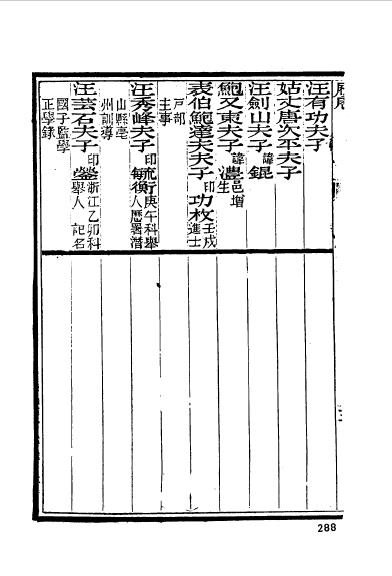 汪有功夫子
姑丈唐欠平夫子
汪劍山夫子諱錕
鮑又東夫子諱灃邑增生
表伯鮑達夫夫子印功枚壬戌進士
戶部主事
汪秀峰夫子印毓衡庚午科舉人歷署潛
山縣亳州訓導
汪芸石夫子印鎣浙江乙卯科舉人記名
國子監學正學錄
288